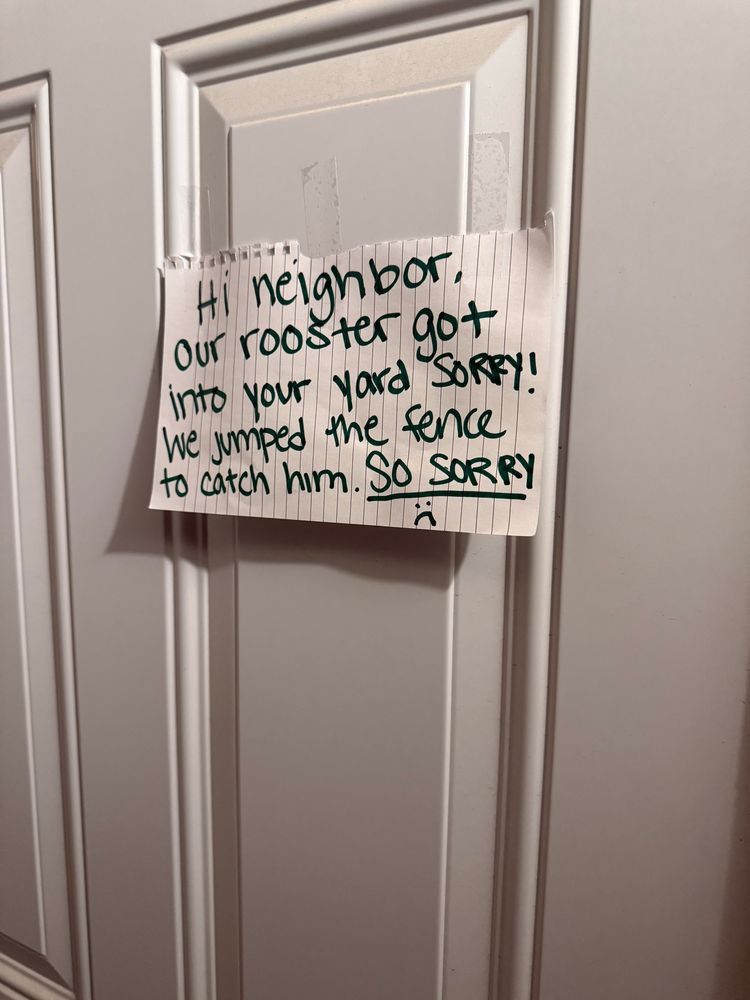 Hi neighbor,
our rooster got
into your yard SORRY!
We jumped the fence
to catch him. SO SORRY
:(